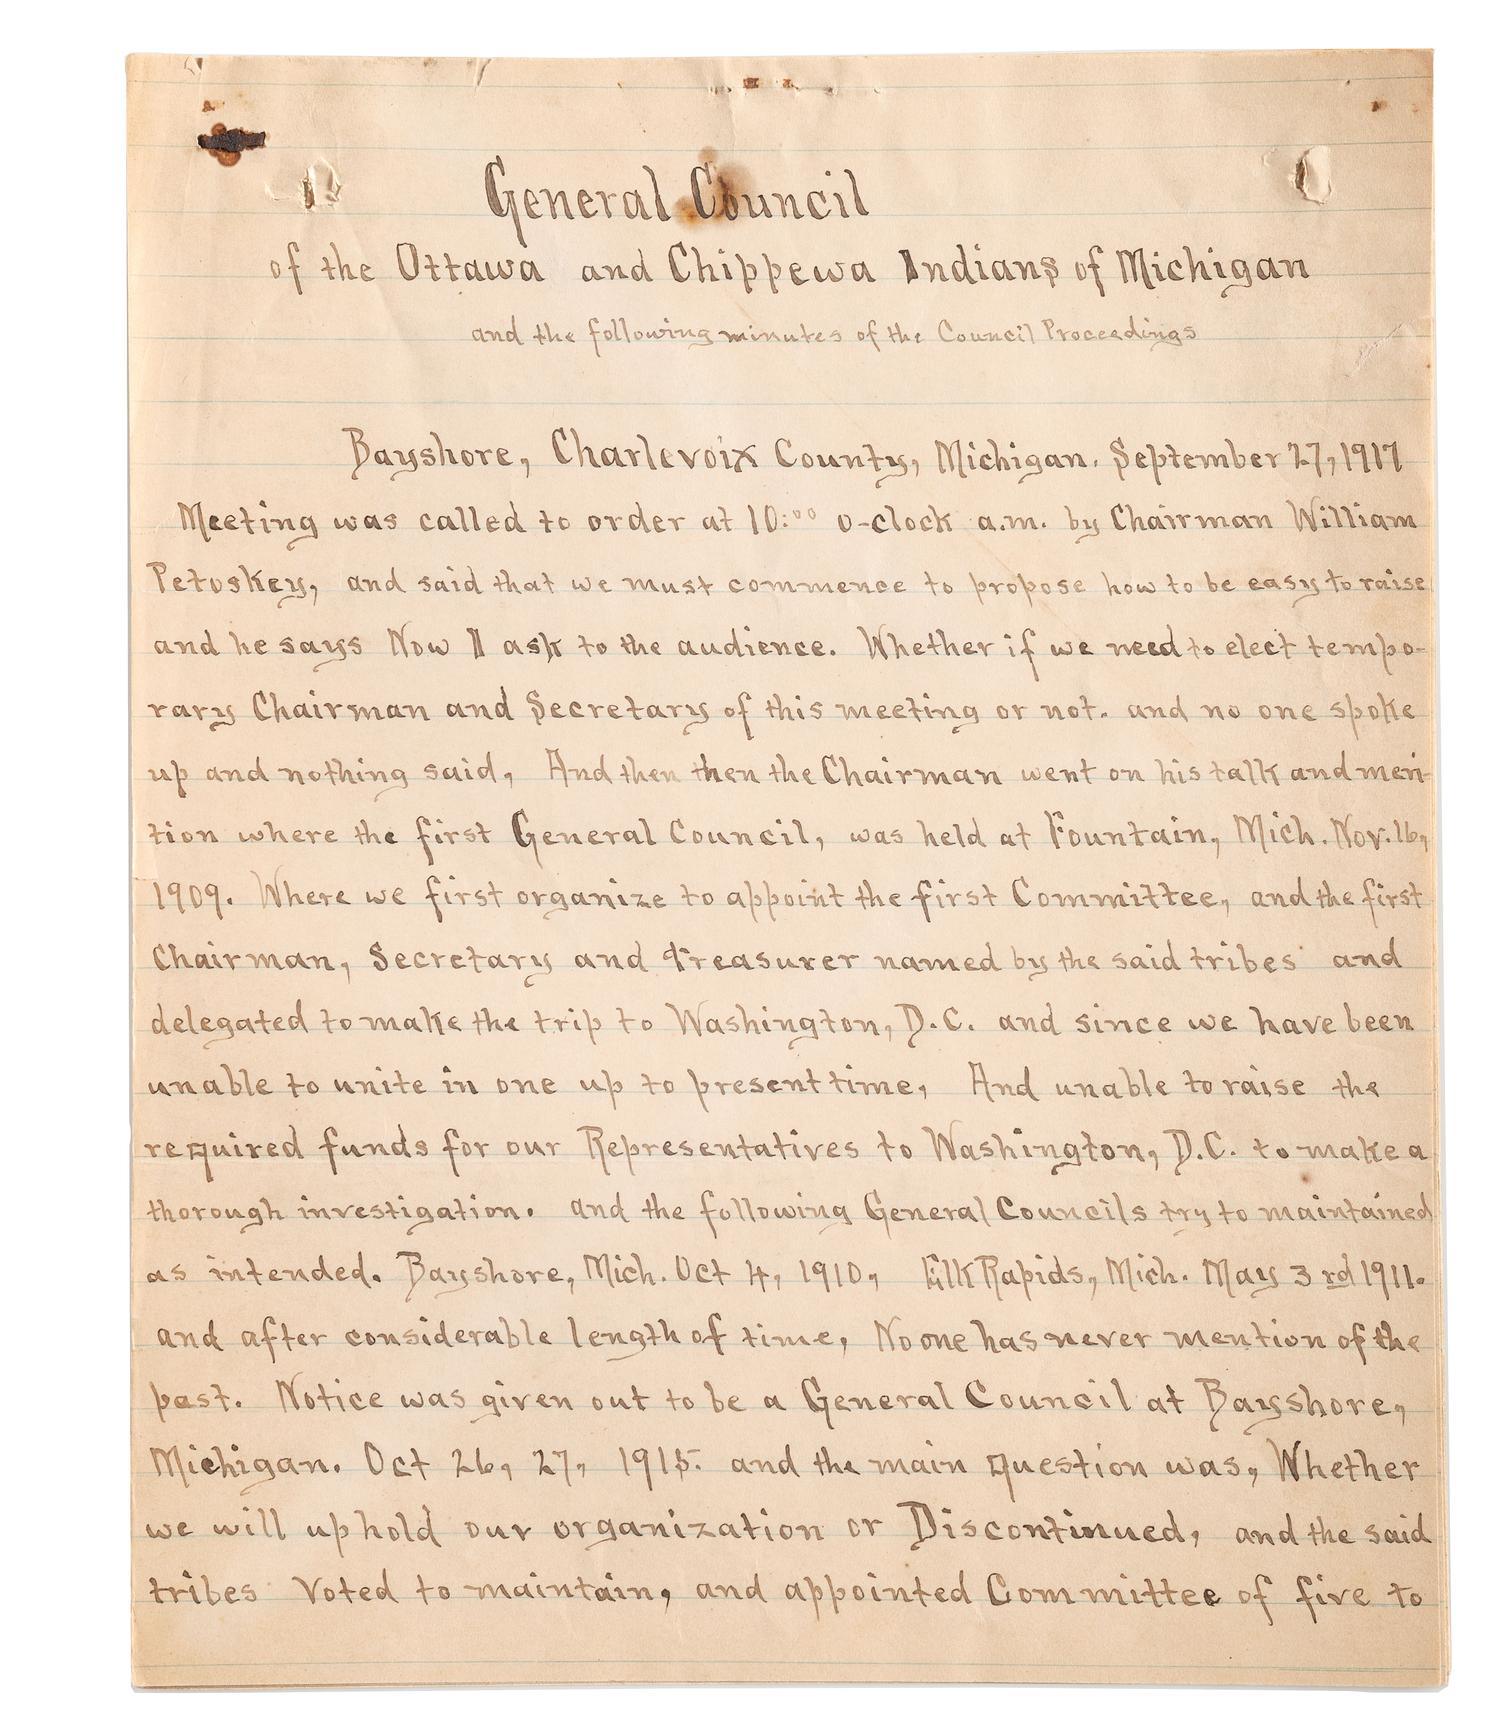 General Council
of the Ottawa and Chippewa Indians of Michigan
and the following minutes of the Council Proceedings
Bayshore, Charlevoix County, Michigan. September 27, 1917
Meeting was called to order at 10:00 o-clock a.m. by Chairman William
Petoskey, and said that we must commence to propose how to be easy to raise
and he says Now I ask to the audience. Whether if we need to elect tempo-
rary Chairman and Secretary of this meeting or not. and no one spoke
up and nothing said, And then then the Chairman went on his talk and men-
tion where the first General Council, was held at Fountain, Mich. Nov. 16,
1909. Where we first organize to appoint the first Committee, and the first
Chairman, Secretary and Treasurer named by the said tribes and
delegated to make the trip to Washington, D.C. and since we have been
unable to unite in one up to present time, And unable to raise the
required funds for our Representatives to Washington, D.C. to make a
thorough investigation. and the following General Councils try to maintained
as intended. Bayshore, Mich. Oct 4, 1910, Elk Rapids, Mich. May 3rd 1911.
and after considerable length of time, No one has never mention of the
past. Notice was given out to be a General Council at Bayshore,
Michigan. Oct 26, 27, 1915. and the main question was, Whether
we will uphold our organization or Discontinued, and the said
tribes Voted to maintain, and appointed Committee of five to